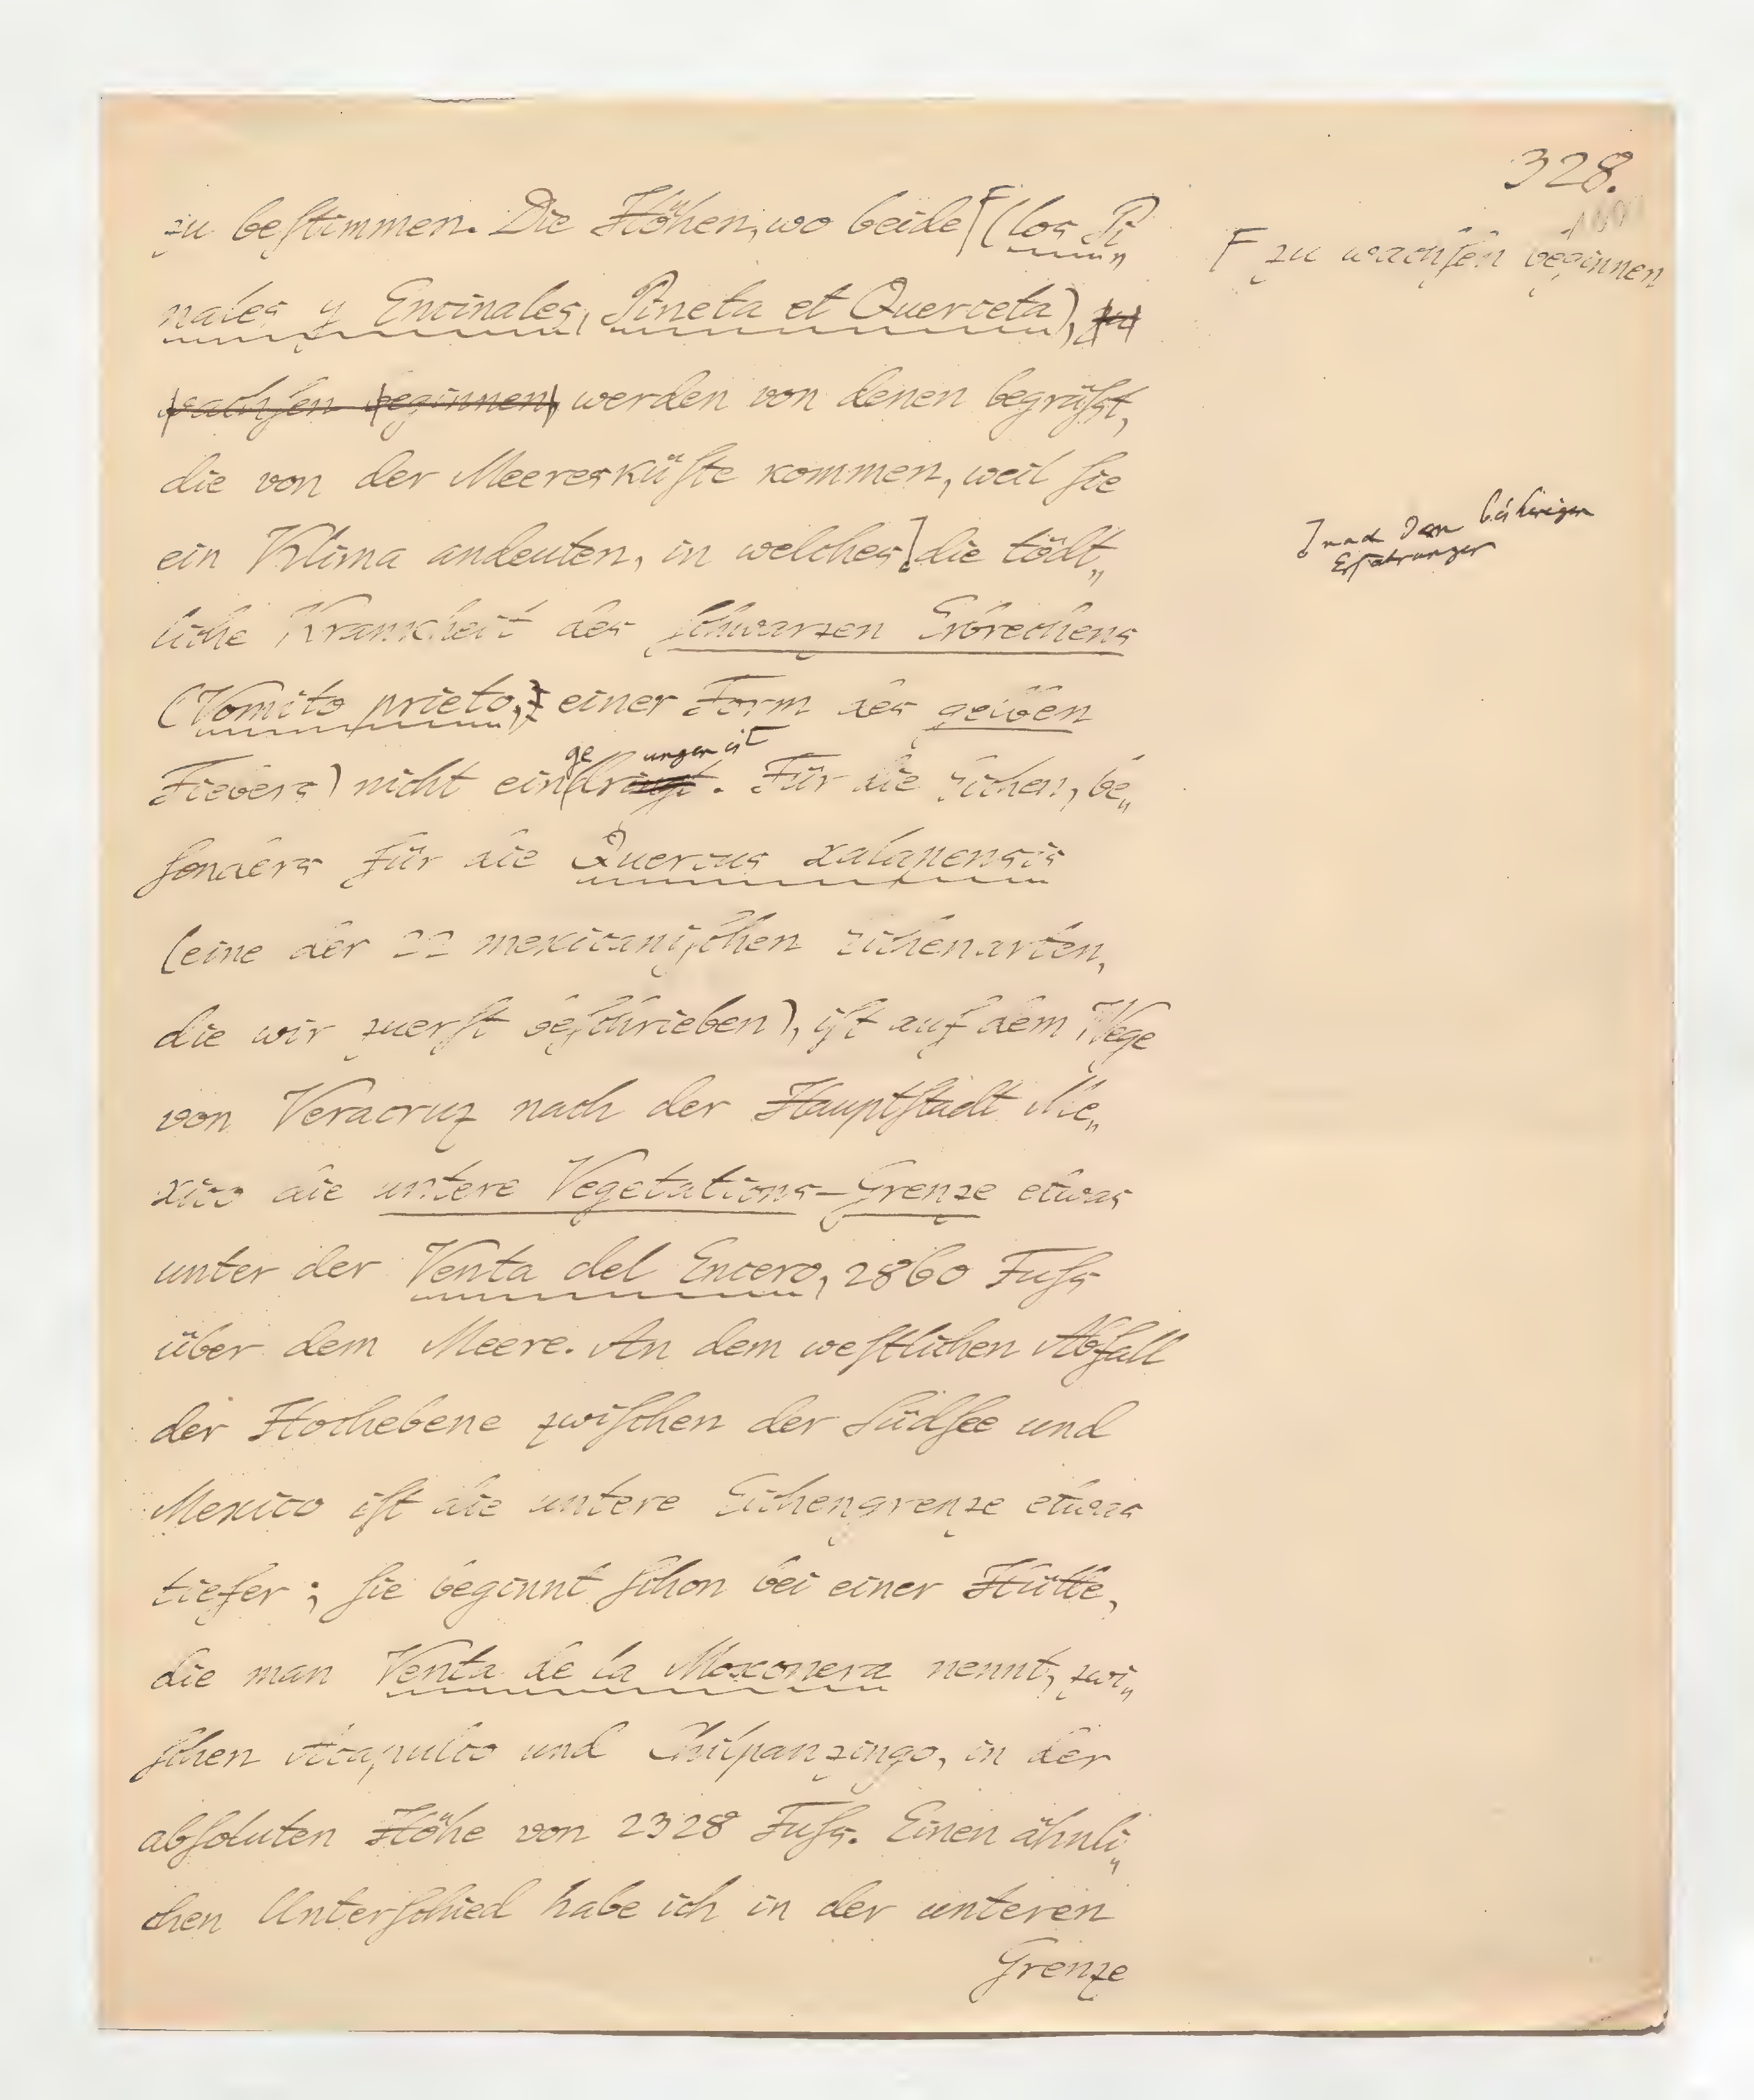 328.
zu beſtimmen. Die Höhen, wo beide (los Pi„
F zu wachſen beginnen
nales y Encinales, Pineta et Querceta), zu
wachſen beginnen, werden von denen begrüſst,
die von der Meeresküſte kommen, weil ſie
ein Klima andeuten, in welches die tödt„
nach den bisherigen
Erfahrungen
liche Krankheit des ſchwarzen Erbrechens
(Vomito prieto, einer Form des gelben
ge ungen ist
Fiebers) nicht eindringt. Für die Eichen, be„
ſonders für die Quercus xalapensis
(eine der 22 mexicaniſchen Eichenarten,
die wir zuerſt beſchrieben), iſt auf dem Wege
von Veracruz nach der Hauptſtadt Me„
xico die untere Vegetations-Grenze etwas
unter der Venta del Encero, 2860 Fuſs
über dem Meere. An dem weſtlichen Abfall
der Hochebene zwiſchen der Südſee und
Mexico iſt die untere Eichengrenze etwas
tiefer; ſie beginnt ſchon bei einer Hütte,
die man Venta de la Moxonera nennt, zwi„
ſchen Acapulco und Chilpanzingo, in der
abſoluten Höhe von 2328 Fuſs. Einen ähnli„
chen Unterſchied habe ich in der unteren
Grenze